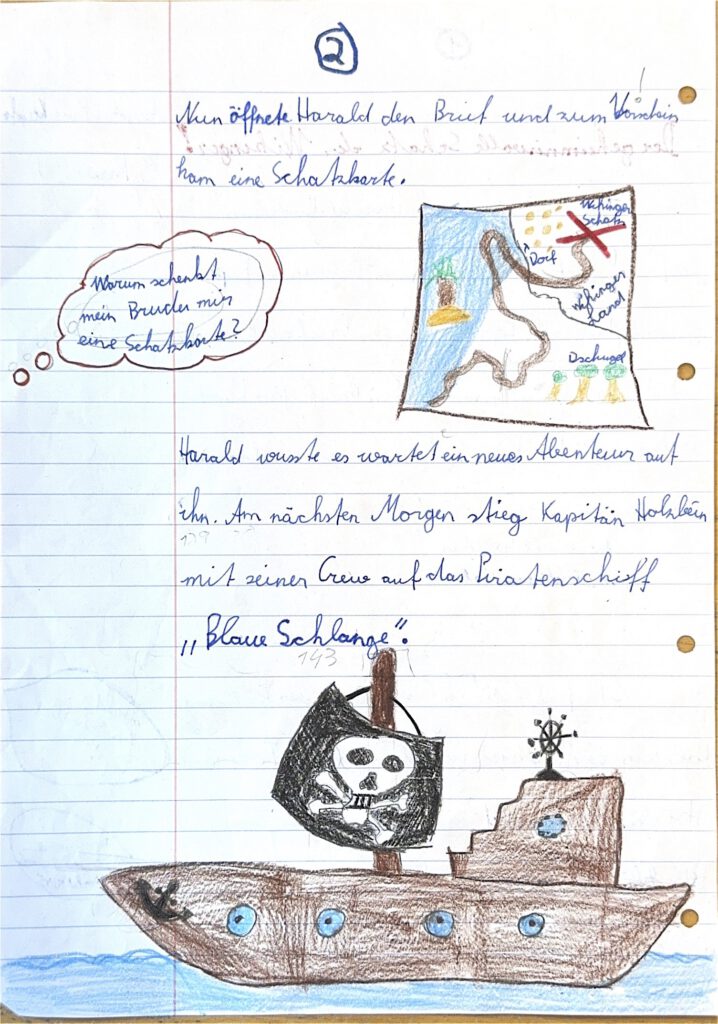 2
Nun öffnete Harald den Brief und zum Vorschein
kam eine Schatzkarte.
Warum schenkt
mein Bruder mir
eine Schatzkarte?
Wikinger
Schatz
Dorf
Wikinger
Land
Dschugel
Harald wusste es wartet ein neues Abenteuer auf
ihn. Am nächsten Morgen stieg Kapitän Holzbein
139
mit seiner Crew auf das Piratenschiff
„Blaue Schlange".
143